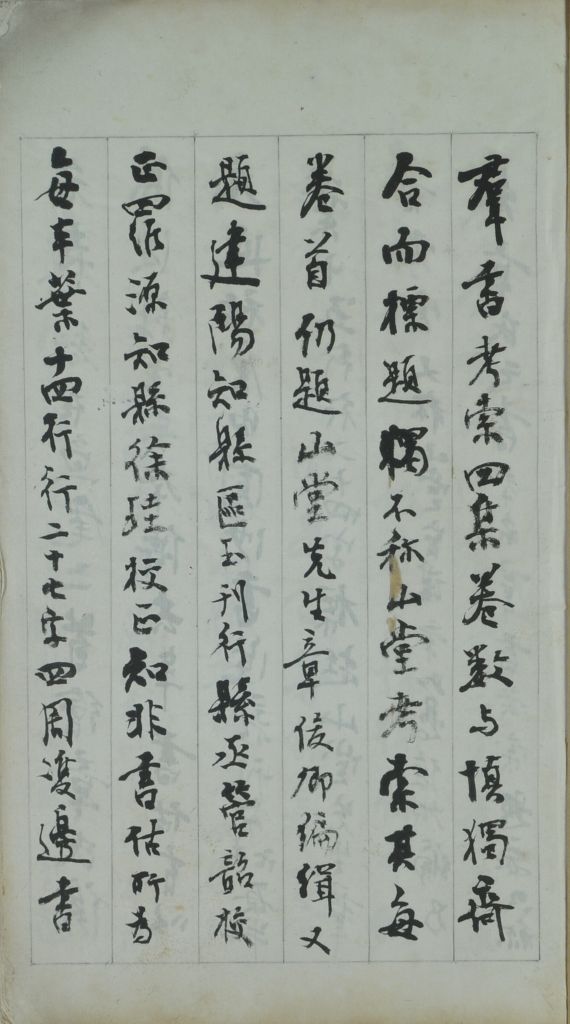 羣書考索四集卷数与慎獨斎
合而標題獨不称山堂考索其每
卷首仍題山堂先生章俊卿編緝又
題建陽知縣區玉刊行縣丞管韶校
正羅源知縣徐珪校正知非書估所為
每半葉十四行行二十七字四周䨇邊書